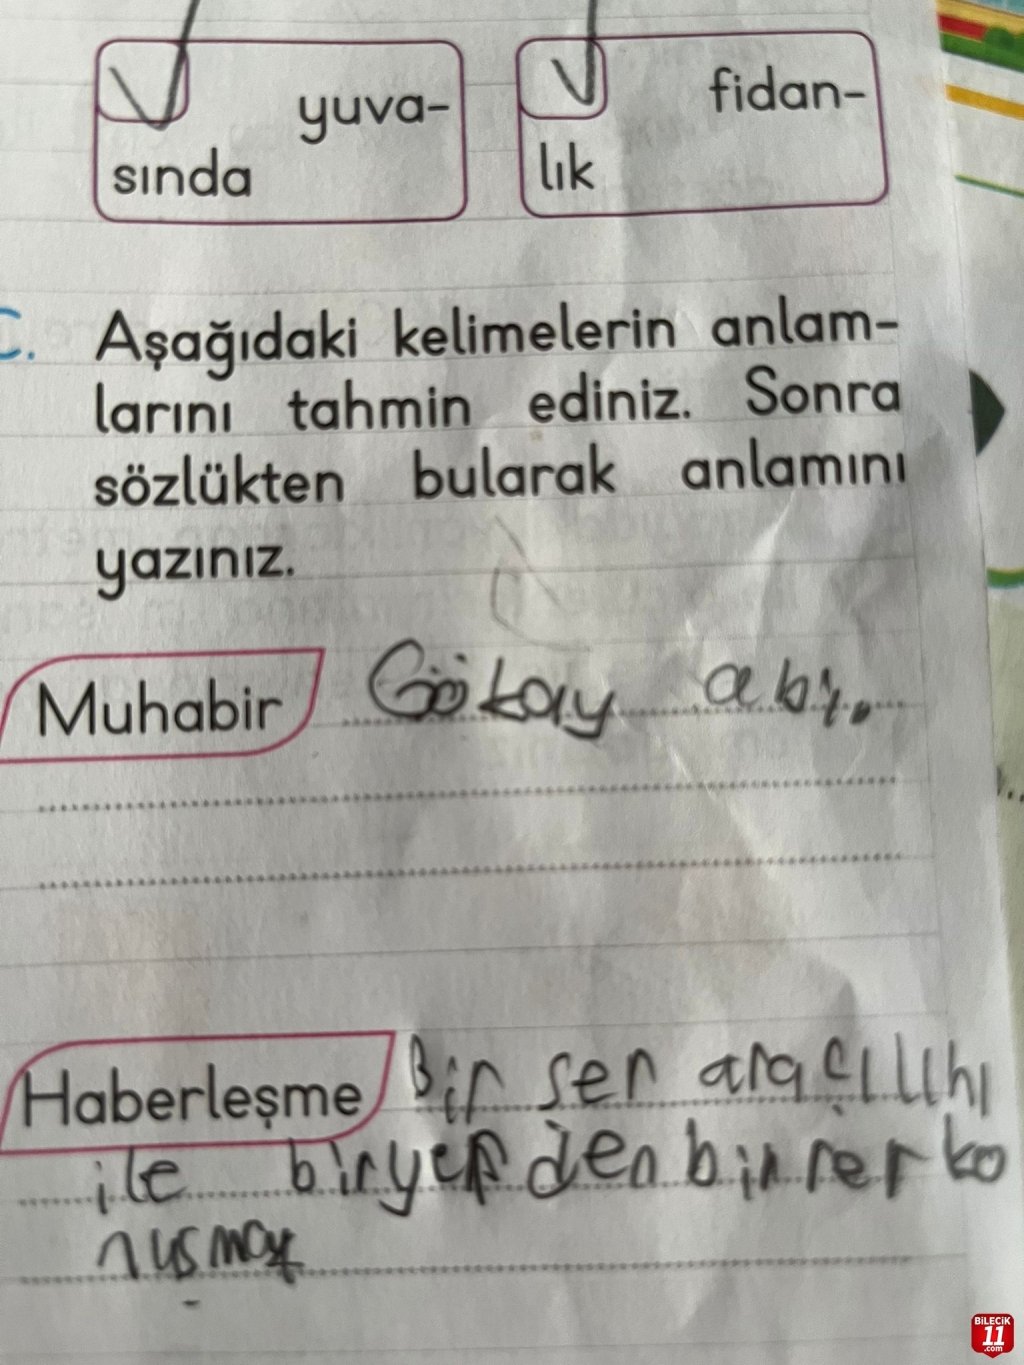 yuva-
sında
fidan-
lık
C. Aşağıdaki kelimelerin anlam-
larını tahmin ediniz. Sonra
sözlükten bularak anlamını
yazınız.
Muhabir Gökay abi.
Haberleşme Bir ser araçılıhı
ile biryerden birrer ko
nuşmak
BİLECİK
11
.com